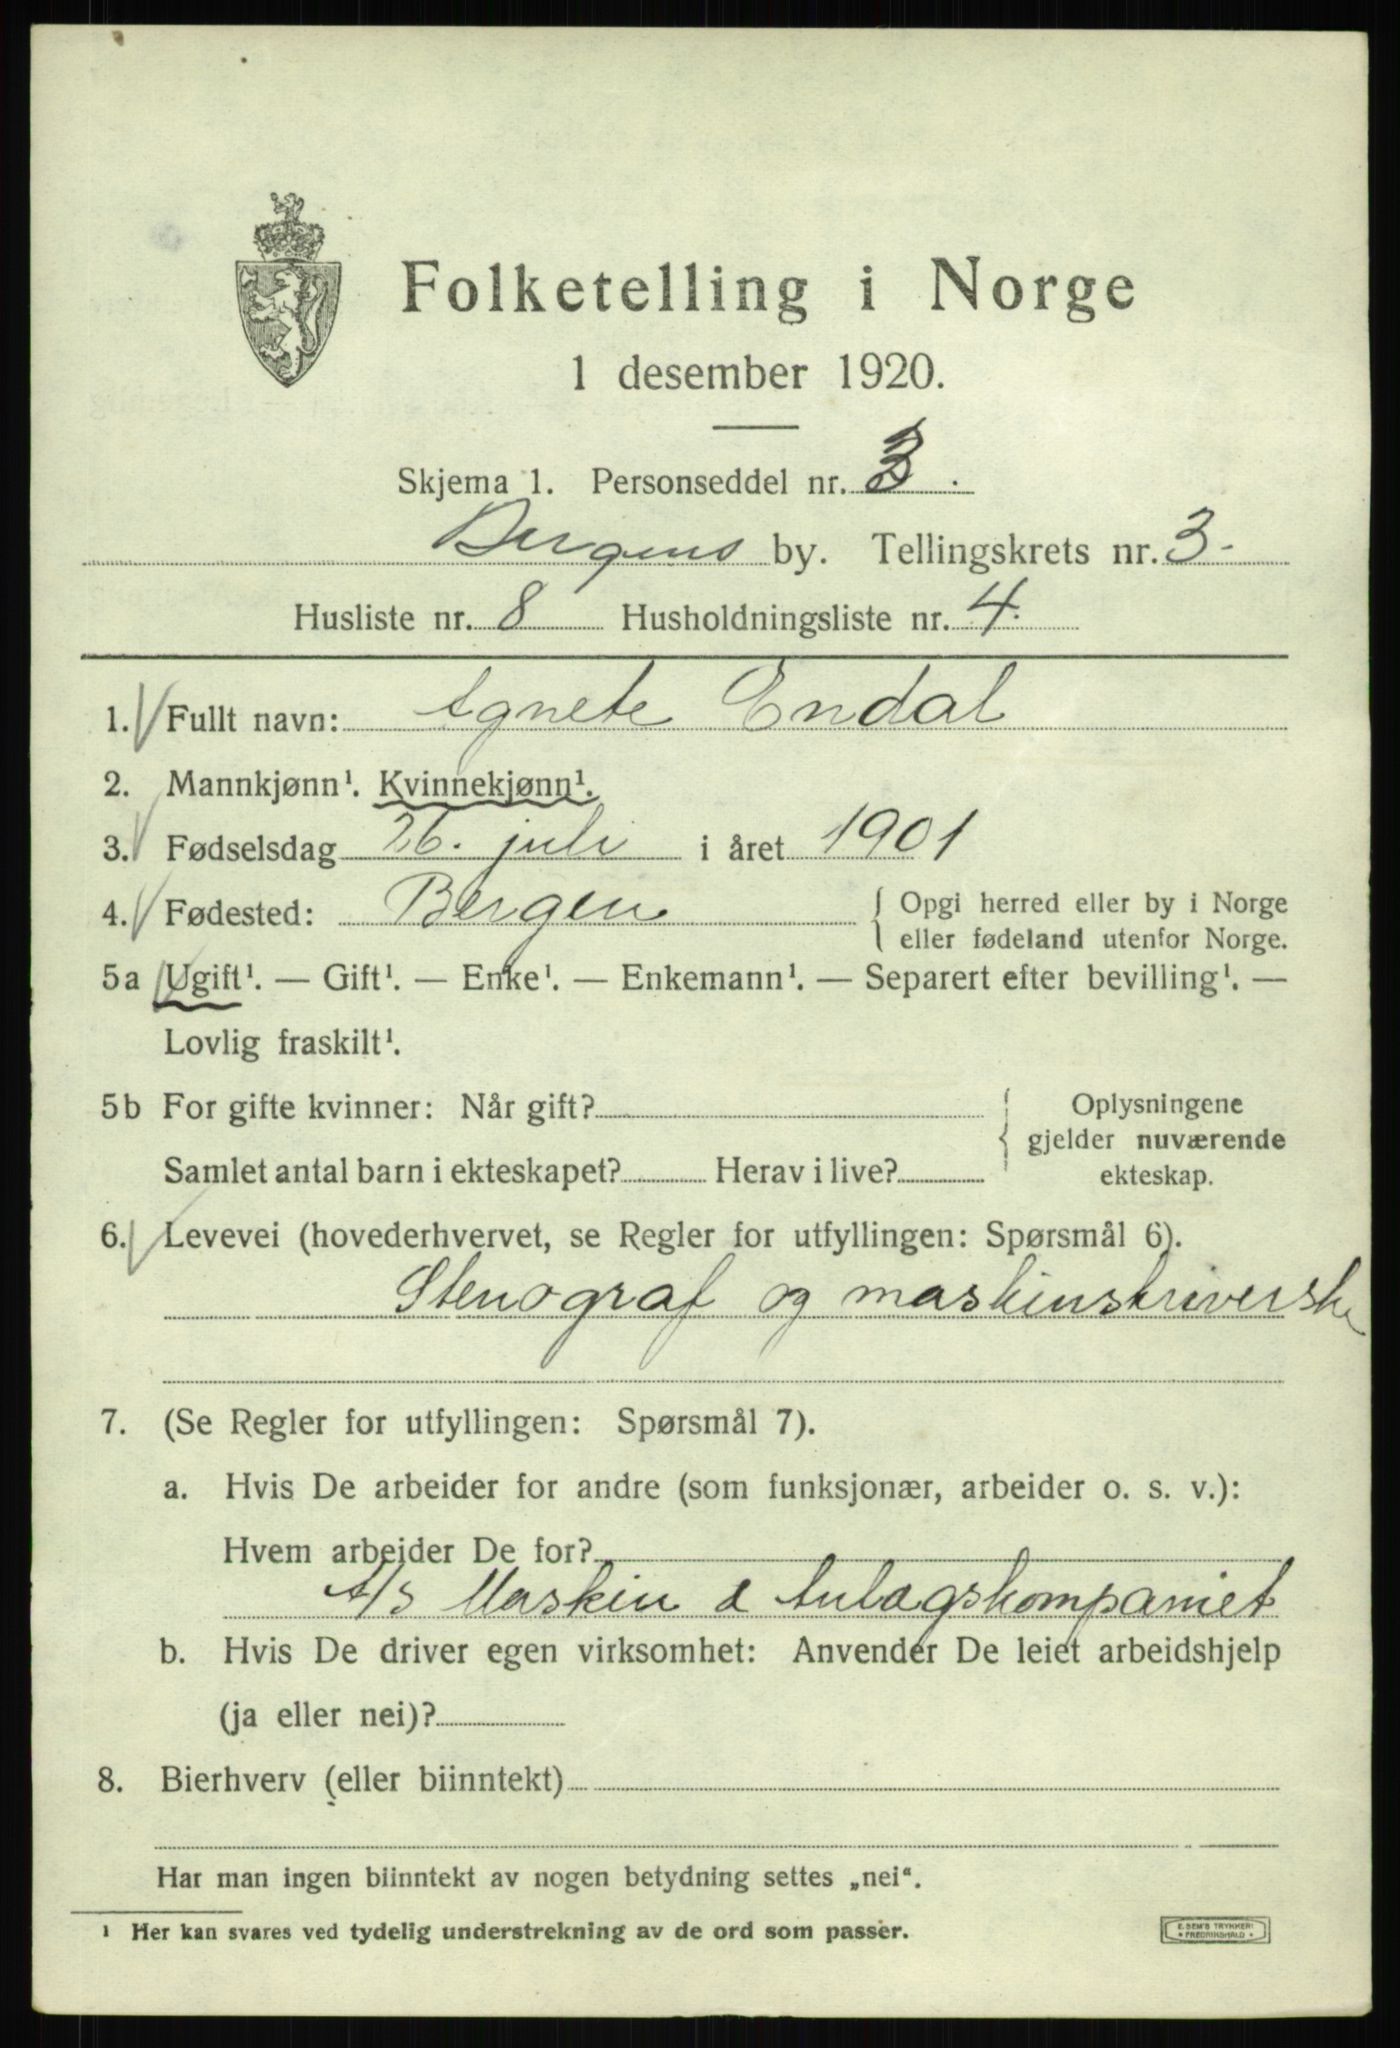 Folketelling i Norge
1 desember 1920.
Skjema 1. Personseddel nr. 3.
Bergens by. Tellingskrets nr. 3.
Husliste nr. 8 Husholdningsliste nr. 4.
1. Fullt navn: Agnete Endal
2. Mannkjønn¹. Kvinnekjønn¹.
3. Fødselsdag 26. juli i året 1901
4. Fødested: Bergen { Opgi herred eller by i Norge
eller fødeland utenfor Norge.
5a Ugift¹. — Gift¹. — Enke¹. — Enkemann¹. — Separert efter bevilling¹. —
Lovlig fraskilt¹.
5b For gifte kvinner: Når gift? { Oplysningene
gjelder nuværende
Samlet antal barn i ekteskapet? Herav i live? ekteskap.
6. Levevei (hovederhvervet, se Regler for utfyllingen: Spørsmål 6).
Stenograf og maskinskriverske
7. (Se Regler for utfyllingen: Spørsmål 7).
a. Hvis De arbeider for andre (som funksjonær, arbeider o. s. v.):
Hvem arbeider De for?
A/S Maskin & Anlægskompaniet
b. Hvis De driver egen virksomhet: Anvender De leiet arbeidshjelp
(ja eller nei)?
8. Bierhverv (eller biinntekt)
Har man ingen biinntekt av nogen betydning settes „nei“.
¹ Her kan svares ved tydelig understrekning av de ord som passer.
E. SEM'S TRYKKERI
* FREDRIKSHALD *